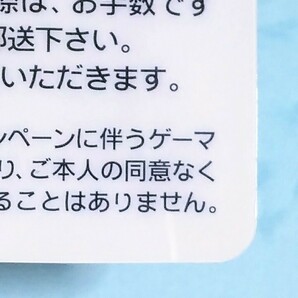 際は、お手数です
郵送下さい。
いただきます。
ンペーンに伴うゲーマ
り、ご本人の同意なく
ることはありません。